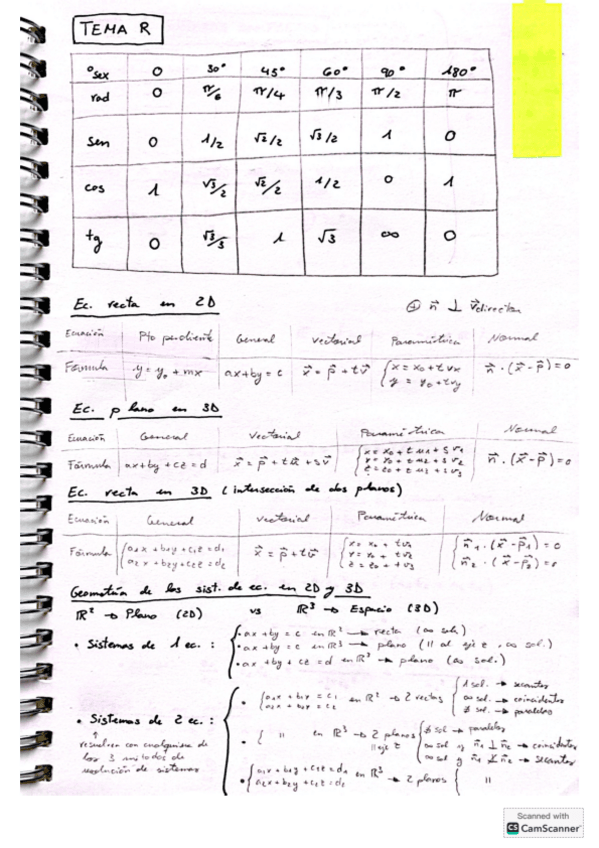 TEMA R
°sex 0 30° 45° 60° 90° 180°
rad 0 π/6 π/4 π/3 π/2 π
sen 0 1/2 √2/2 √3/2 1 0
cos 1 √3/2 √2/2 1/2 0 1
tg 0 √3/3 1 √3 ∞ 0
Ec. recta en 2D
n⃗ ⊥ v⃗director
Ecuación Pto pendiente General Vectorial Paramétrica Normal
Fórmula y = y₀ + mx ax+by = c x⃗ = p⃗ + tv⃗ { x = x₀ + t vx
y = y₀ + t vy
n⃗ · (x⃗ - p⃗) = 0
Ec. plano en 3D
Ecuación General Vectorial Paramétrica Normal
Fórmula ax+by+cz = d x⃗ = p⃗ + tu⃗ + sv⃗ { x = x₀ + t u₁ + s v₁
y = y₀ + t u₂ + s v₂
z = z₀ + t u₃ + s v₃
n⃗ · (x⃗ - p⃗) = 0
Ec. recta en 3D (intersección de dos planos)
Ecuación General Vectorial Paramétrica Normal
Fórmula { a₁x + b₁y + c₁z = d₁
a₂x + b₂y + c₂z = d₂
x⃗ = p⃗ + tv⃗
n⃗₁ · (x⃗ - p⃗₁) = 0
n⃗₂ · (x⃗ - p⃗₂) = 0
Geometría de los sist. de ec. en 2D y 3D
ℝ² → Plano (2D) vs ℝ³ → Espacio (3D)
• Sistemas de 1 ec. : { • ax + by = c en ℝ² → recta (∞ sol.)
• ax + by = c en ℝ³ → plano (|| al eje z, ∞ sol.)
• ax + by + cz = d en ℝ³ → plano (∞ sol.)
• Sistemas de 2 ec. :
↑
resuelven con cualquiera de
los 3 métodos de
resolución de sistemas
• { a₁x + b₁y = c₁
a₂x + b₂y = c₂
en ℝ² → 2 rectas { 1 sol. → secantes
∞ sol. → coincidentes
∄ sol. → paralelas
• { " en ℝ³ → 2 planos || eje z { ∄ sol → paralelos
→ coincidentes
→ secantes
• { a₁x + b₁y + c₁z = d₁
a₂x + b₂y + c₂z = d₂
en ℝ³ → 2 planos { "
Scanned with
CS CamScanner